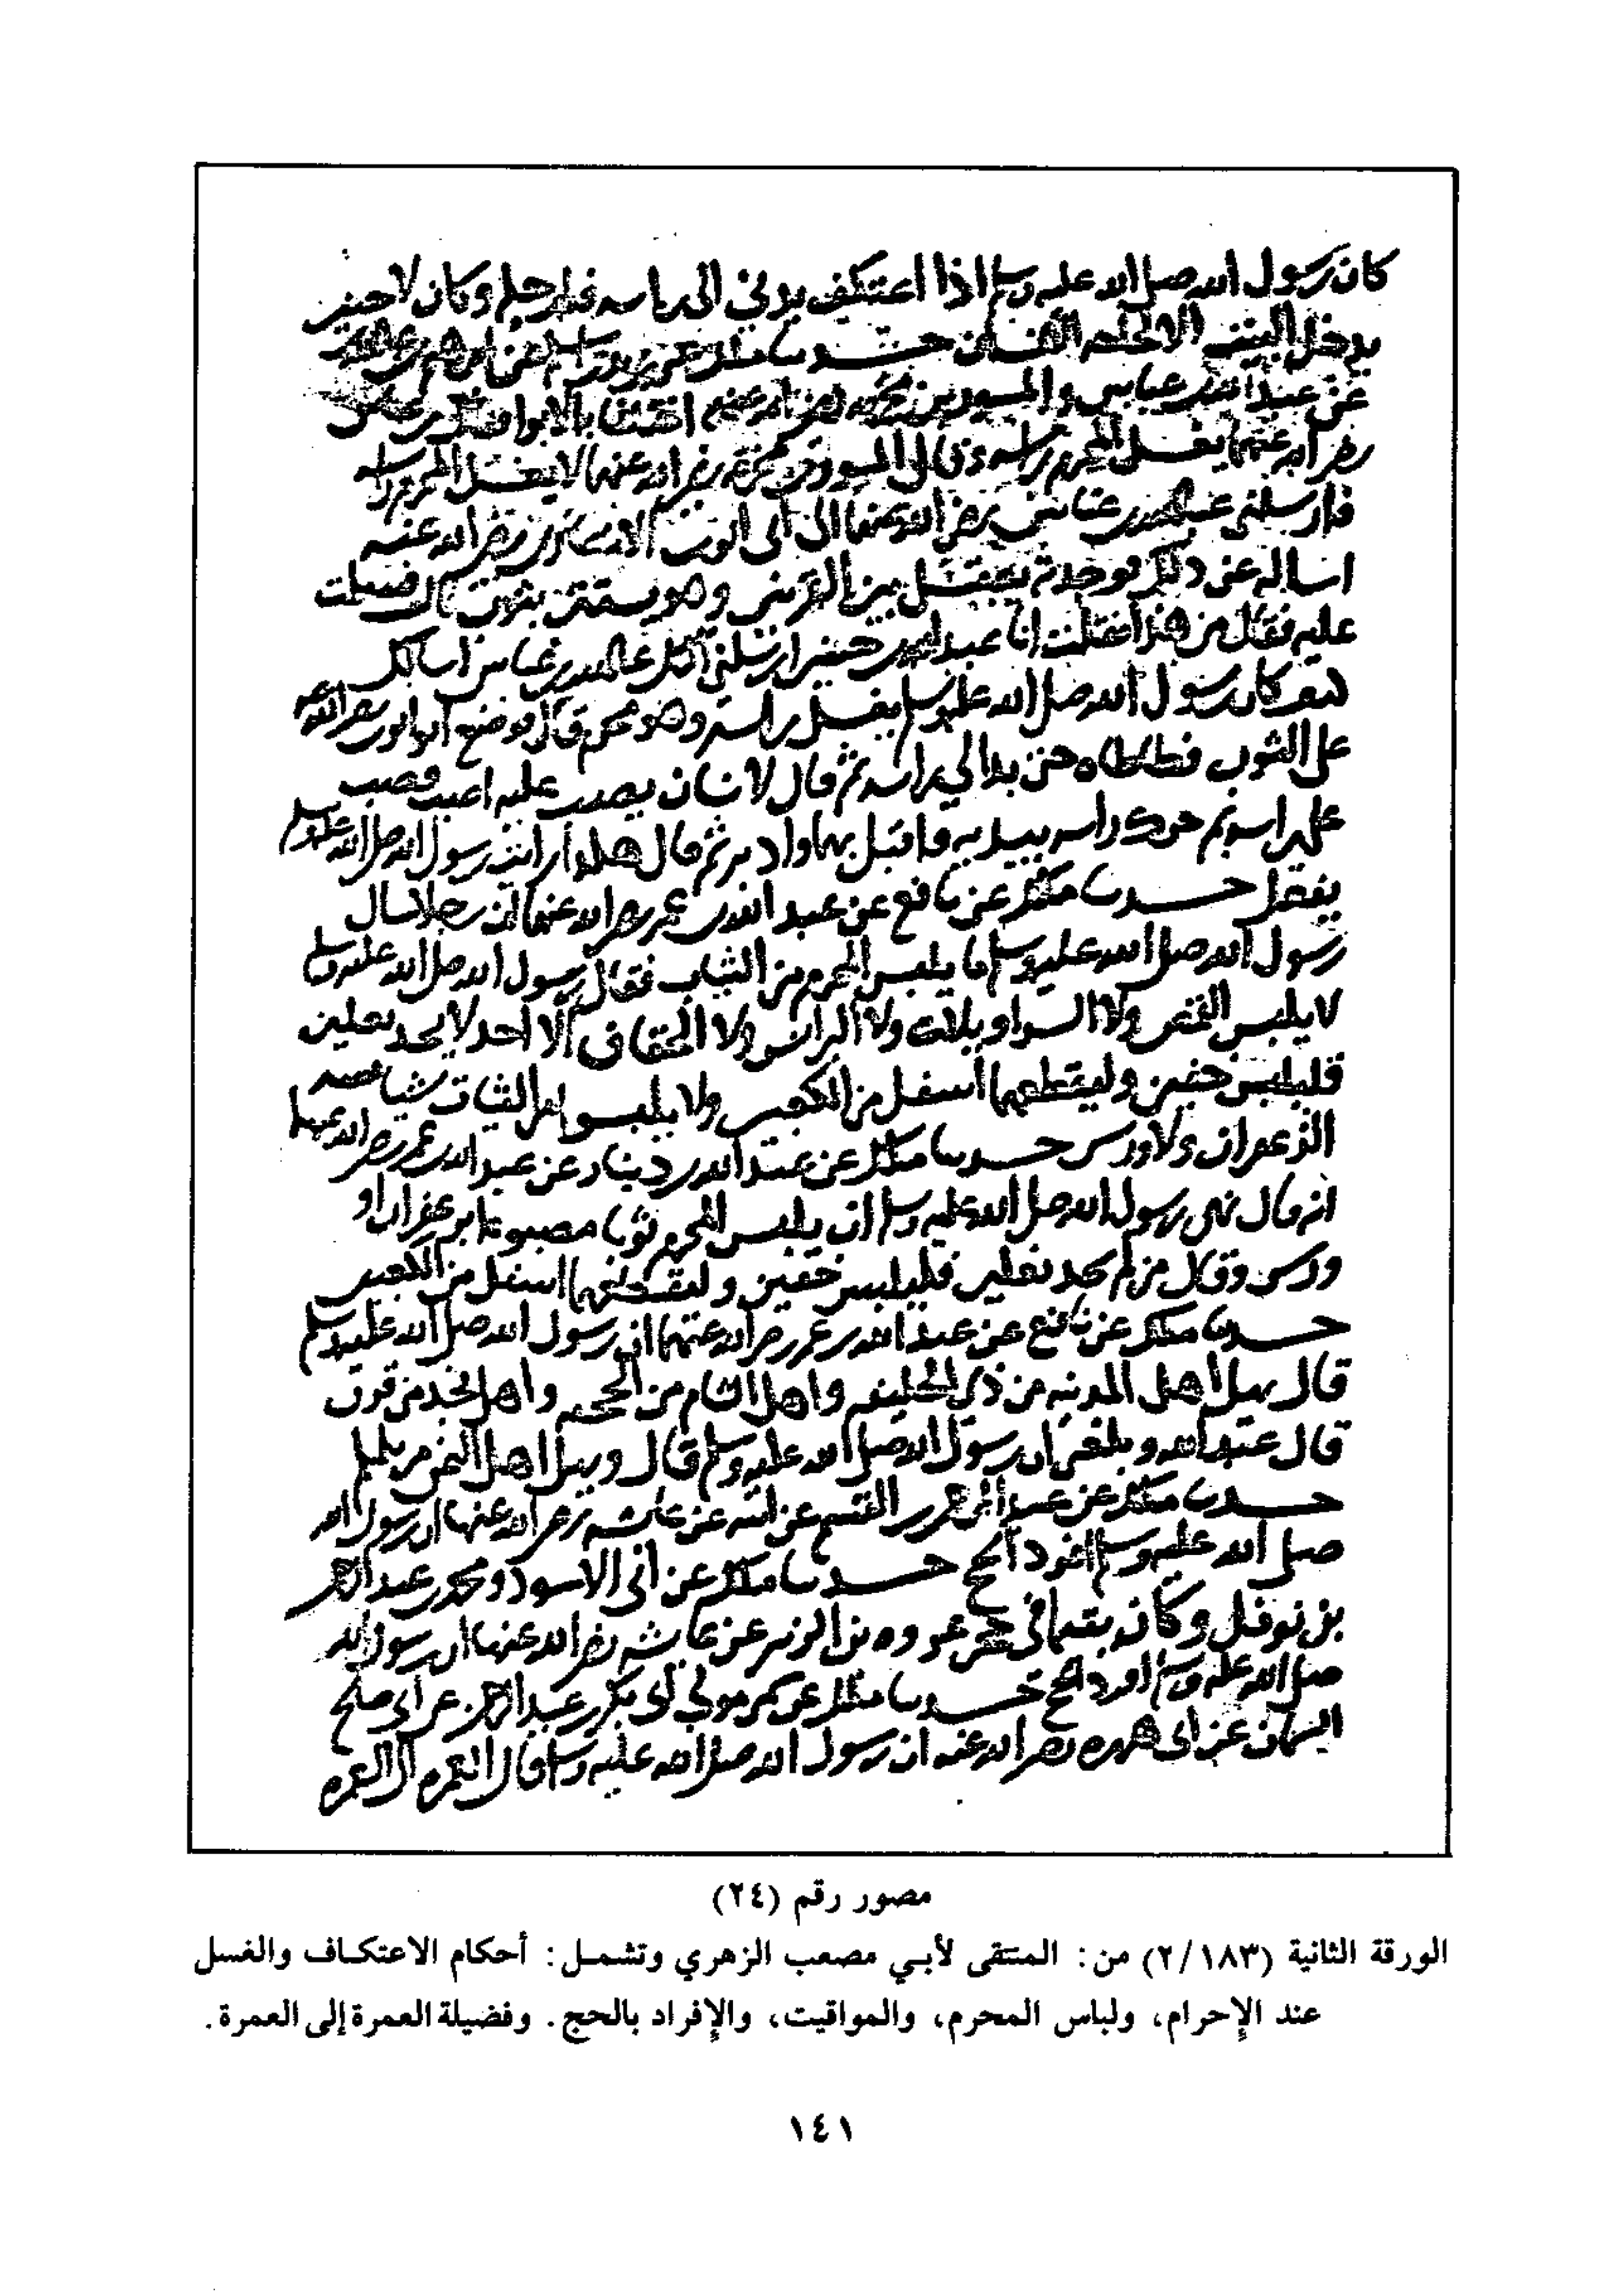 كان رسول الله صلى الله عليه وسلم اذا اعتكف يدني الى راسه فارجله وكان لا
يدخل البيت الا لحاجة الانسان حدثنا ملك عن زيد بن اسلم عن ابرهيم بن عبد الله
عن عبد الله بن عباس والمسور بن مخرمة رضي الله عنهم اختلفا بالابوا فقال ابن عباس
رضي الله عنهما يغسل المحرم راسه وقال المسور بن مخرمة رضي الله عنهما لا يغسل المحرم راسه
فارسلني عبد الله بن عباس رضي الله عنهما الى ابي ايوب الانصاري رضي الله عنه
اساله عن ذلك فوجدته يغتسل بين القرنين وهو يستتر بثوب قال فسلمت
عليه فقال من هذا فقلت انا عبد الله بن حنين ارسلني اليك عبد الله بن عباس اسالك
كيف كان رسول الله صلى الله عليه وسلم يغسل راسه وهو محرم قال فوضع ابو ايوب رضي الله عنه
على الثوب فطاطاه حتى بدا لي راسه ثم قال لانسان يصب عليه اصبب فصب
على راسه ثم حرك راسه بيديه فاقبل بهما وادبر ثم قال هكذا رايت رسول الله صلى الله عليه وسلم
يفعل حدثنا ملك عن نافع عن عبد الله بن عمر رضي الله عنهما ان رجلا سال
رسول الله صلى الله عليه وسلم ما يلبس المحرم من الثياب فقال رسول الله صلى الله عليه وسلم
لا يلبس القمص ولا السراويلات ولا البرانس ولا الخفاف الا احد لا يجد نعلين
فليلبس خفين وليقطعهما اسفل من الكعبين ولا يلبسوا من الثياب شيا مسه
الزعفران ولا ورس حدثنا ملك عن عبد الله بن دينار عن عبد الله بن عمر رضي الله عنهما
انه قال نهى رسول الله صلى الله عليه وسلم ان يلبس المحرم ثوبا مصبوغا بزعفران او
ورس وقال من لم يجد نعلين فليلبس خفين وليقطعهما اسفل من الكعبين
حدثنا ملك عن نافع عن عبد الله بن عمر رضي الله عنهما ان رسول الله صلى الله عليه وسلم
قال يهل اهل المدينه من ذي الحليفه واهل الشام من الجحفه واهل نجد من قرن
قال عبد الله وبلغني ان رسول الله صلى الله عليه وسلم قال ويهل اهل اليمن من يلملم
حدثنا ملك عن عبد الرحمن بن القسم عن ابيه عن عائشه رضي الله عنها ان رسول الله
صلى الله عليه وسلم افرد الحج حدثنا ملك عن ابي الاسود محمد بن عبد الرحمن
بن نوفل وكان يتيما في حجر عروه بن الزبير عن عائشه رضي الله عنها ان رسول الله
صلى الله عليه وسلم افرد الحج حدثنا ملك عن سمي مولى ابي بكر بن عبد الرحمن عن ابي صلح
السمان عن ابي هريره رضي الله عنه ان رسول الله صلى الله عليه وسلم قال العمره الى العمره
مصور رقم (٢٤)
الورقة الثانية (٢/١٨٣) من: المنتقى لأبي مصعب الزهري وتشمل: أحكام الاعتكاف والغسل
عند الإحرام، ولباس المحرم، والمواقيت، والإفراد بالحج. وفضيلة العمرة إلى العمرة.
١٤١